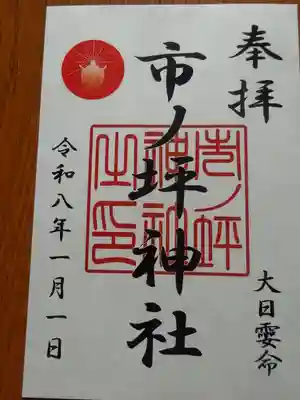 奉拝
市ノ坪神社
市ノ坪神社之印
大日孁命
令和八年一月一日